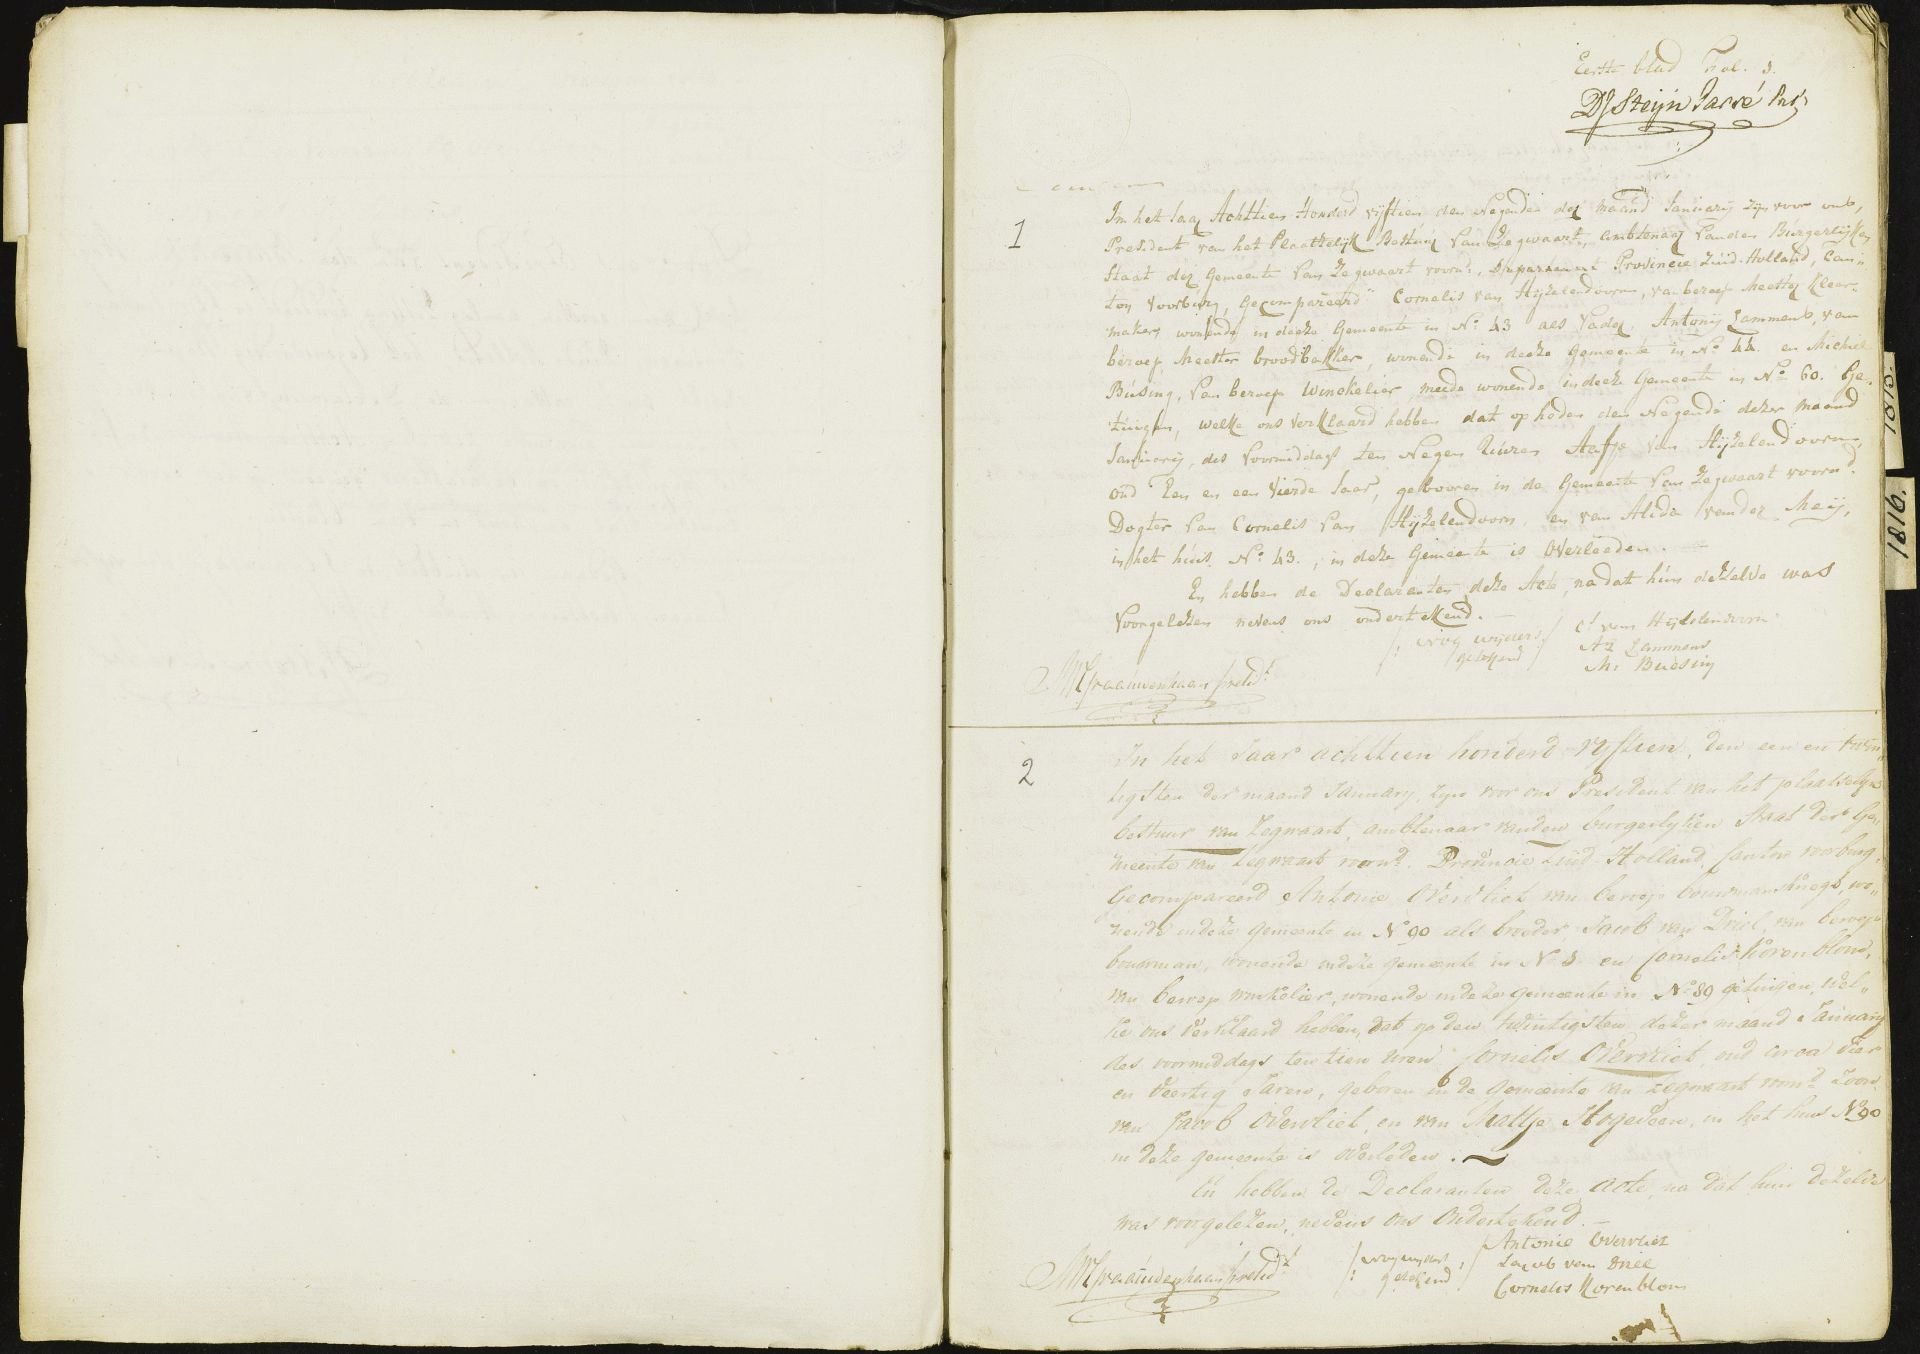 Eerste blad Fol. 1.
DJ Steijn Parvé Pres.
1
In het Jaar Achttien Honderd vijftien den Negenden der maand Januarij zijn voor ons,
President van het Plaatselijk Bestuur van Zegwaart, ambtenaar van den Burgerlijken
Staat der Gemeente van Zegwaart voornd., Provincie Zuid-Holland, Can„
ton Voorburg, Gecompareerd Cornelis van Hijzelendoorn, van beroep Meester Kleer„
maker, wonende in deeze Gemeente in No. 43 als Vader, Antonij Lammens, van
beroep Meester broodbakker, wonende in deeze Gemeente in No. 44. en Michiel
Büsing, van beroep Winckelier, meede wonende in deeze Gemeente in No. 60. Ge„
tuigen, welke ons verklaard hebben dat op heden den Negende dezer maand
Januarij, des Voormiddags ten Negen Uuren Aafje van Hijzelendoorn,
oud Een en een Vierde Jaar, gebooren in de Gemeente van Zegwaart voornd.
Dogter van Cornelis van Hijzelendoorn, en van Alida van der Meij,
in het huis No. 43., in deze Gemeente is Overleeden.
En hebben de Declaranten deze Acte, na dat hun dezelve was
Voorgelezen nevens ons ondertekend.
/: nog wijders getekend :/
C. van Hijzelendoorn
Az Lammens
M: Buesing
presidt.
2
In het Jaar achttien honderd vyftien, den een en twin„
tigsten der maand January, zyn voor ons President van het plaatselyk
bestuur van Zegwaart, ambtenaar van den burgerlyken Staat der Ge„
meente van Zegwaart voornd. Provincie Zuid-Holland, Canton voorburg,
Gecompareerd Antonie Overvliet van beroep bouwmansknegt, wo„
nende in deze gemeente in No 90 als broeder Jacob van Driel, van beroep
bouwman, wonende in deze gemeente in No 3 en Cornelis Korenblom,
van beroep winkelier, wonende in deze gemeente in No 89 getuigen, wel„
ke ons verklaard hebben, dat op den twintigsten dezer maand January
des voormiddags ten tien uren Cornelis Overvliet oud circa vier
en veertig Jaren, geboren in de Gemeente van Zegwaart voornd. Zoon
van Jacob Overvliet, en van Maltje Hogeveen, in het huis No 90
in deze gemeente is Overleden.
En hebben de Declaranten deze acte, na dat hun dezelve
was voorgelezen, nevens ons Ondertekend.
/: nog wijders getekend :/
Antonie Overvliet
Jacob van Driel
Cornelis Korenblom
presidt.
1815.
1816.